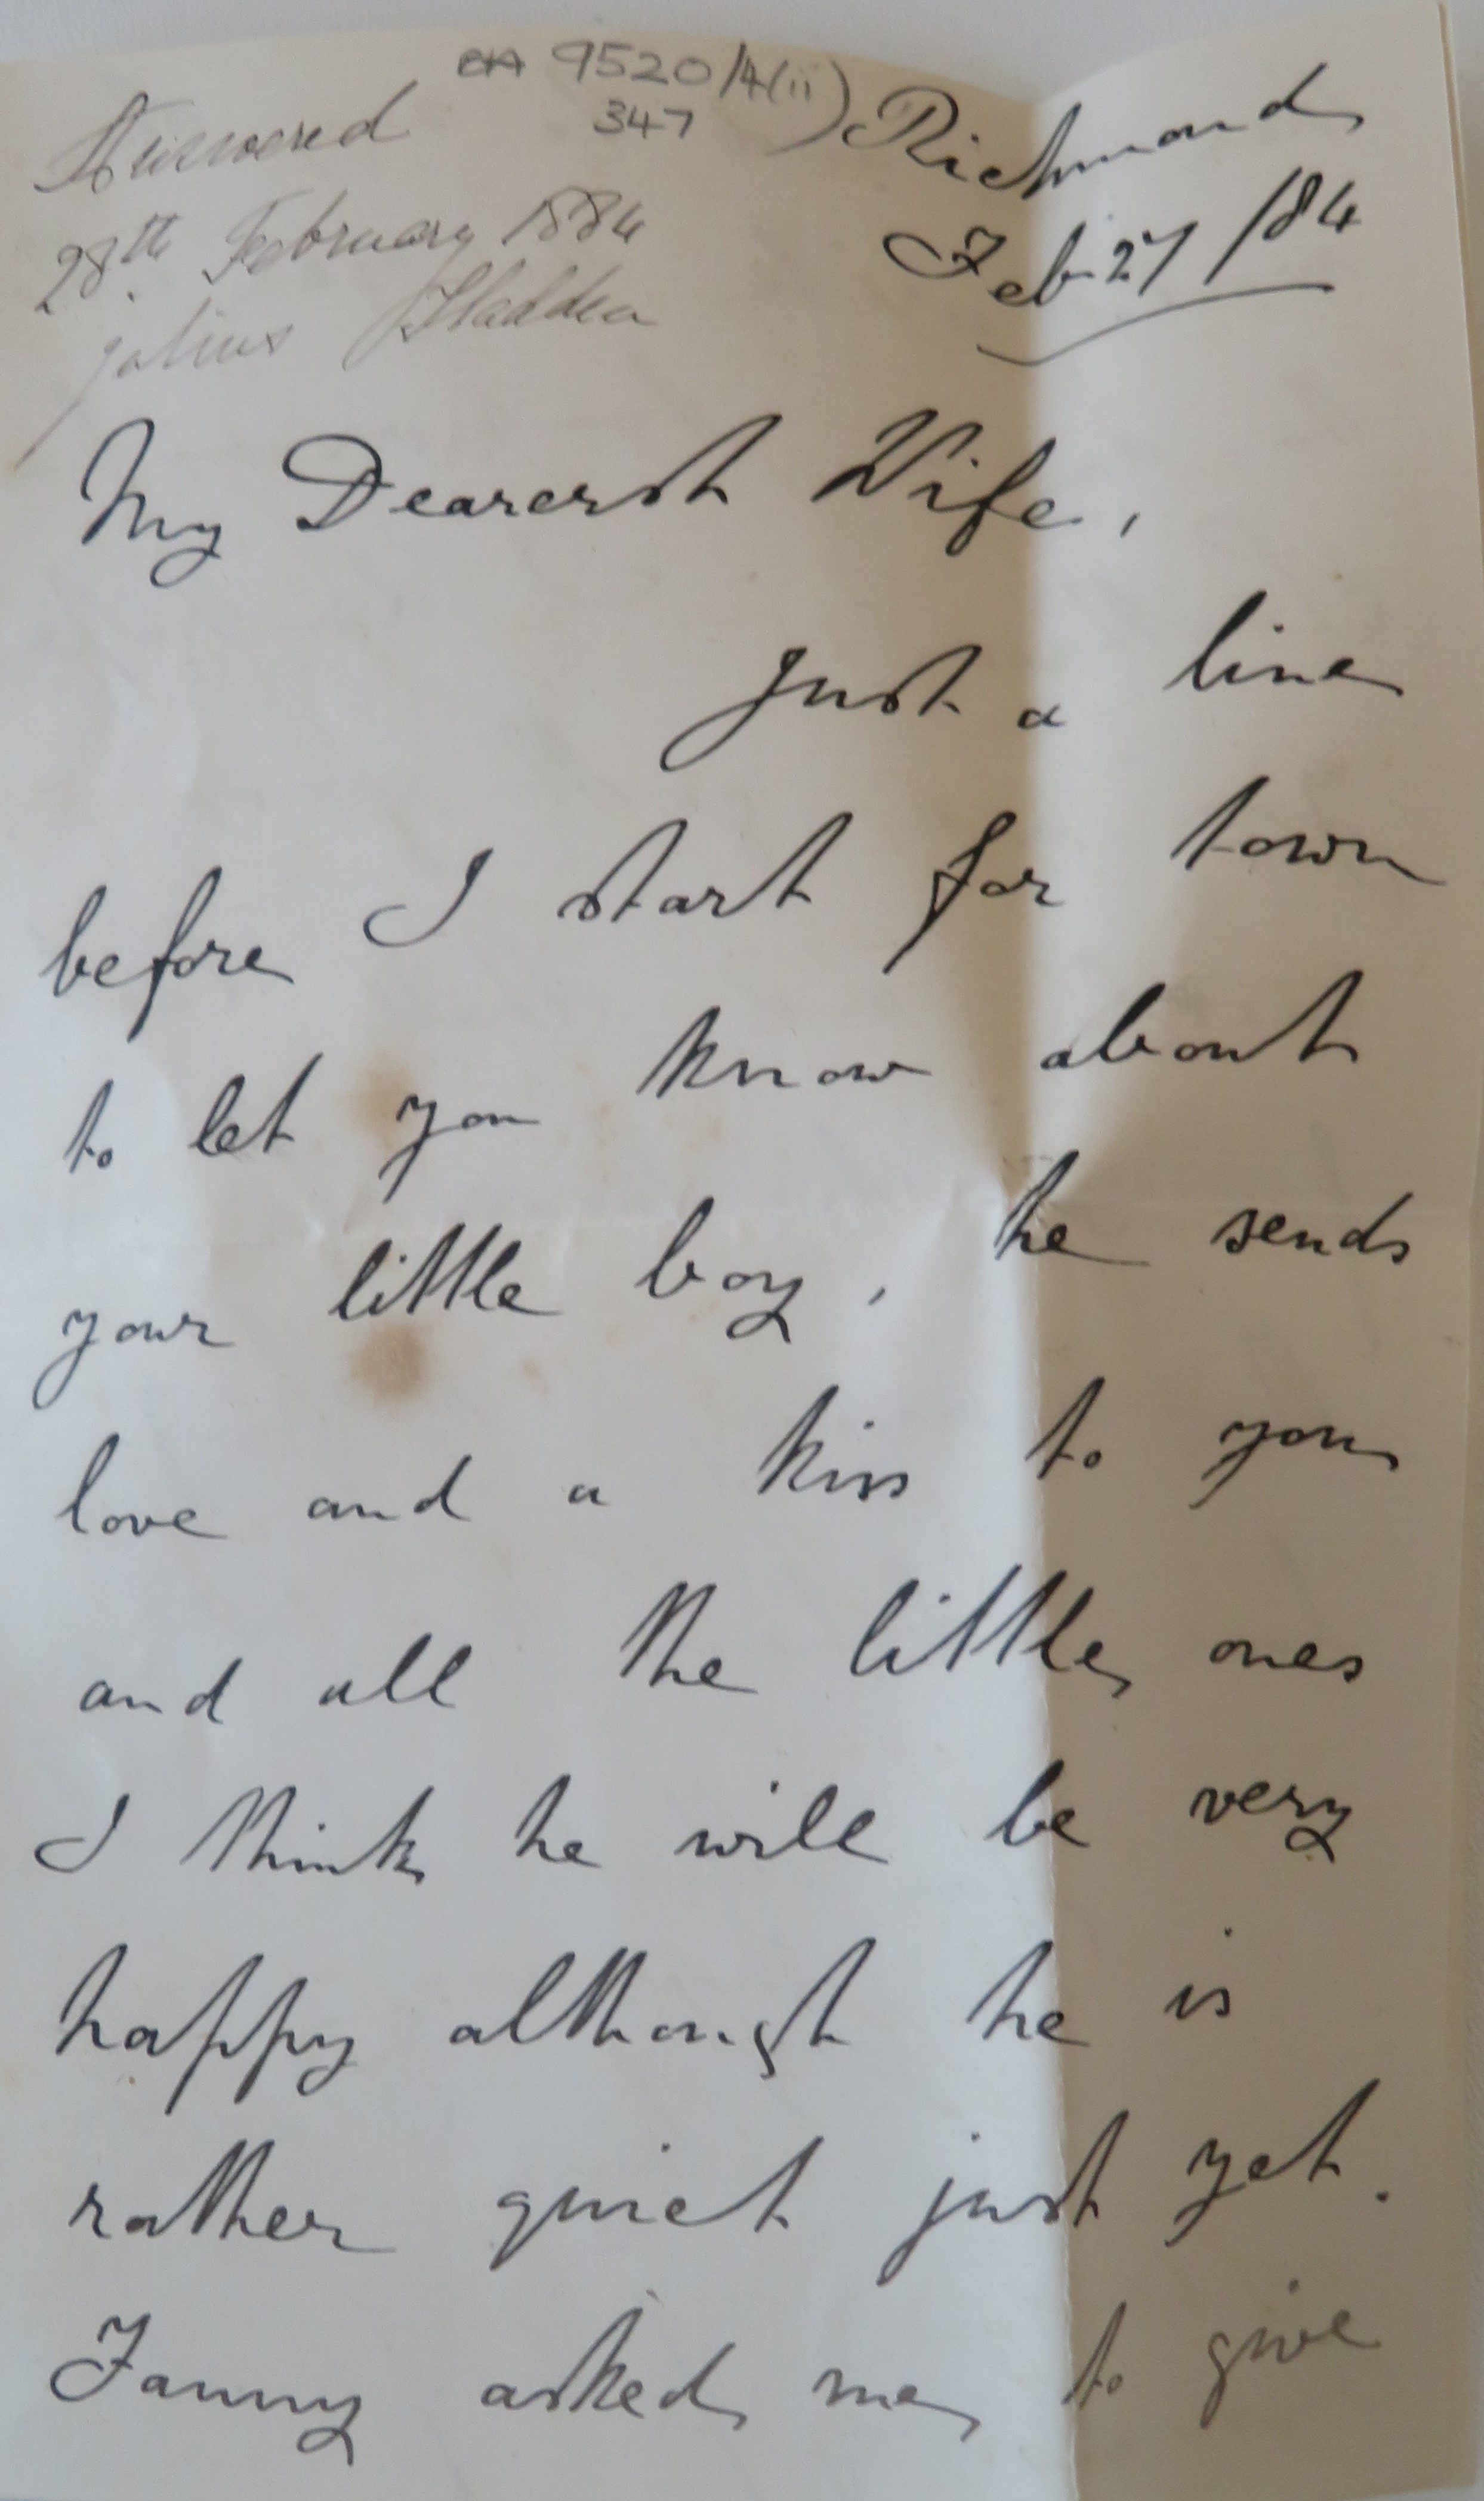 9520/4(ii)
347
Answered
28th February 1884
Julius
Richmond
Feb 27/84
My Dearest Wife,
Just a line
before I start for town
to let you know about
your little boy, he sends
love and a kiss to you
and all the little ones
I think he will be very
happy although he is
rather quiet just yet.
Fanny asked me to give